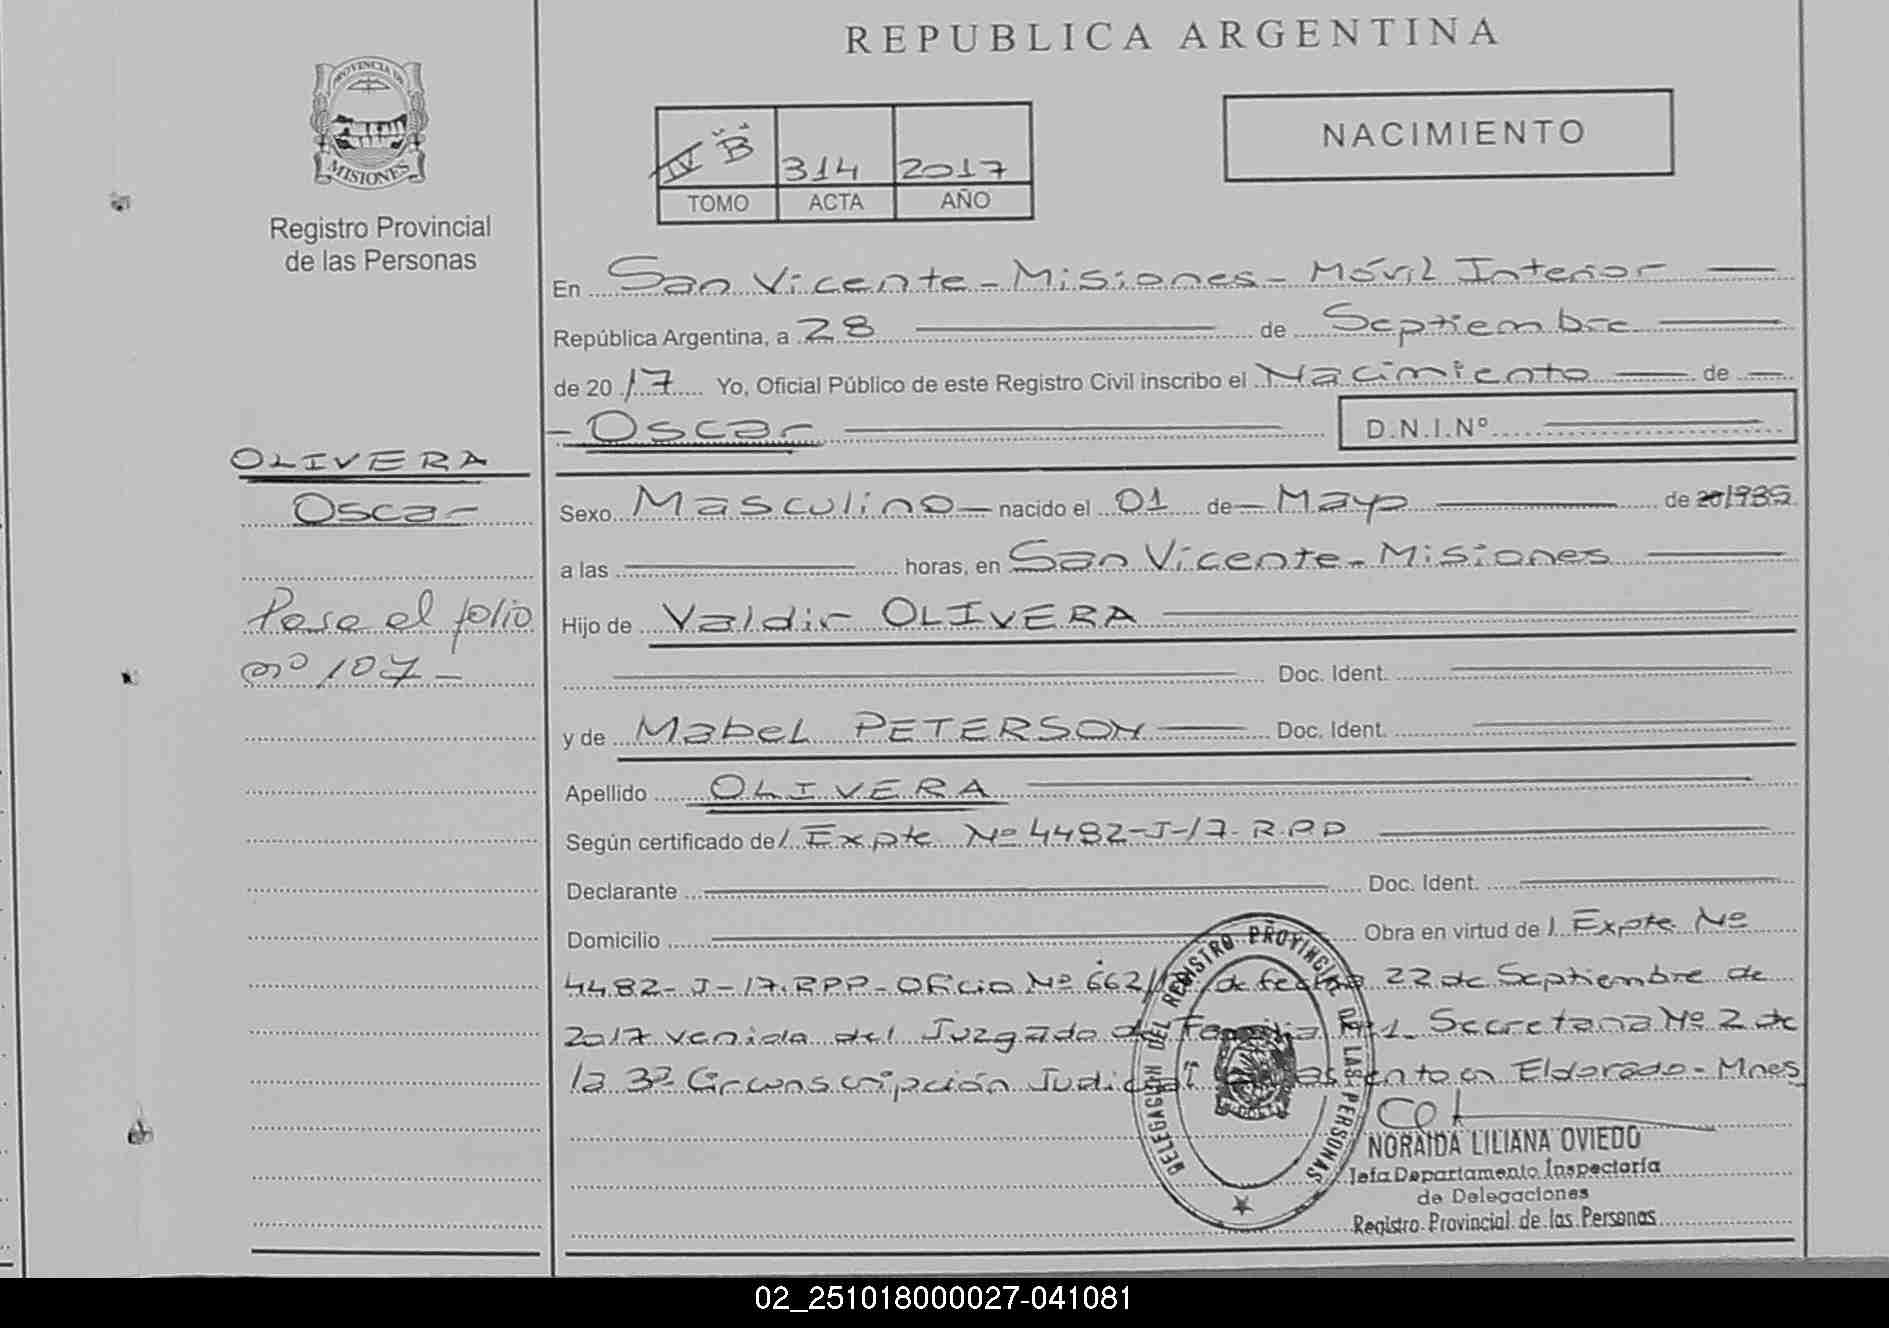 REPUBLICA ARGENTINA
PROVINCIA DE
MISIONES
Registro Provincial
de las Personas
IV "B" 314 2017
TOMO ACTA AÑO
NACIMIENTO
En San Vicente - Misiones - Móvil Interior
República Argentina, a 28 de Septiembre
de 2017 Yo, Oficial Público de este Registro Civil inscribo el Nacimiento de
- Oscar D.N.I.Nº
OLIVERA
Oscar
Pase al folio
nº 107 -
Sexo Masculino - nacido el 01 de - Mayo de 20/1985
a las horas, en San Vicente - Misiones
Hijo de Valdir OLIVERA
Doc. Ident.
y de Mabel PETERSON Doc. Ident.
Apellido OLIVERA
Según certificado de / Expte Nº 4482-J-17- R.P.P
Declarante Doc. Ident.
Domicilio Obra en virtud de / Expte. Nº
4482-J-17. RPP - Oficio Nº 662/ de fecha 22 de Septiembre de
2017 venido del Juzgado de Familia Nº1 Secretaria Nº 2 de
la 3ª Circunscripción Judicial asiento en Eldorado - Mnes
DELEGACIÓN DEL REGISTRO PROVINCIAL DE LAS PERSONAS
NORAIDA LILIANA OVIEDO
Jefa Departamento Inspectoría
de Delegaciones
Registro Provincial de las Personas
02_251018000027-041081